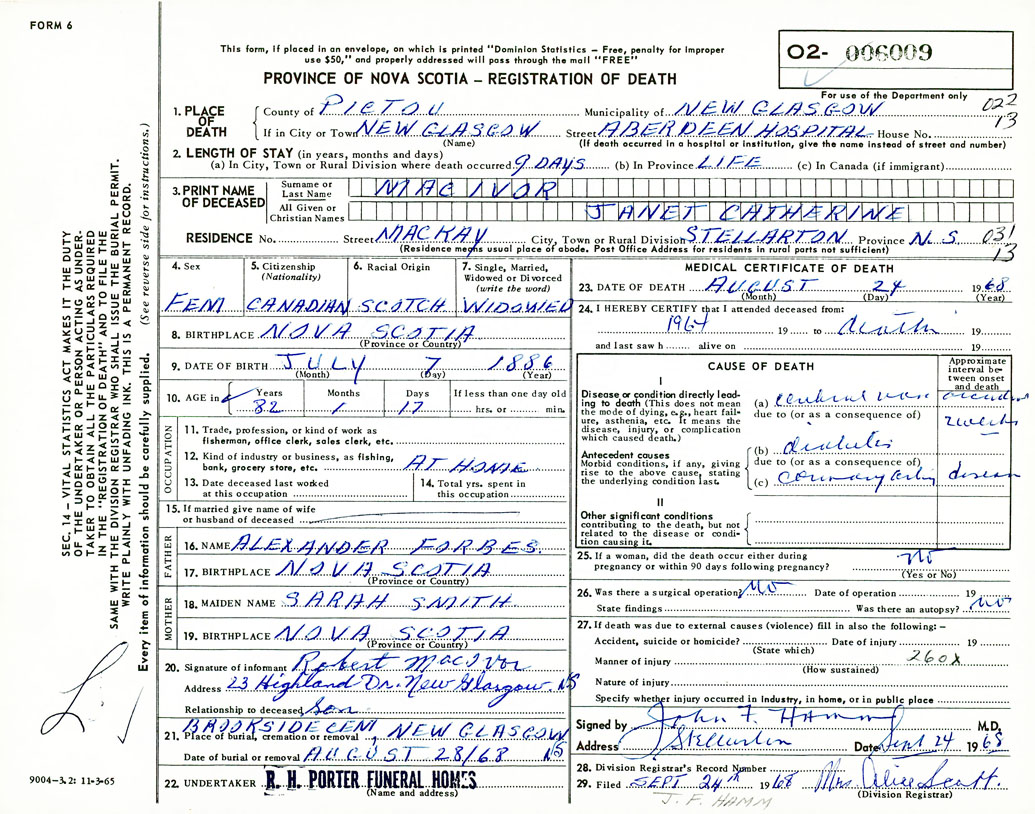 FORM 6
This form, if placed in an envelope, on which is printed "Dominion Statistics – Free, penalty for improper
use $50," and properly addressed will pass through the mail "FREE"
O2- 006009
PROVINCE OF NOVA SCOTIA – REGISTRATION OF DEATH
For use of the Department only
022
13
1. PLACE OF DEATH
County of PICTOU Municipality of NEW GLASGOW
If in City or Town NEW GLASGOW Street ABERDEEN HOSPITAL House No.
(Name) (If death occurred in a hospital or institution, give the name instead of street and number)
2. LENGTH OF STAY (in years, months and days)
(a) In City, Town or Rural Division where death occurred 9 DAYS (b) In Province LIFE (c) In Canada (if immigrant)
3. PRINT NAME OF DECEASED
Surname or Last Name MACIVOR
All Given or Christian Names JANET CATHERINE
RESIDENCE No. Street MACKAY City, Town or Rural Division STELLARTON Province N.S. 031
13
(Residence means usual place of abode. Post Office Address for residents in rural parts not sufficient)
4. Sex
FEM
5. Citizenship
(Nationality)
CANADIAN
6. Racial Origin
SCOTCH
7. Single, Married,
Widowed or Divorced
(write the word)
WIDOWED
8. BIRTHPLACE NOVA SCOTIA
(Province or Country)
9. DATE OF BIRTH JULY 7 1886
(Month) (Day) (Year)
10. AGE in
Years Months Days If less than one day old
82 1 17 hrs. or min.
OCCUPATION
11. Trade, profession, or kind of work as
fisherman, office clerk, sales clerk, etc.
12. Kind of industry or business, as fishing,
bank, grocery store, etc. AT HOME
13. Date deceased last worked
at this occupation
14. Total yrs. spent in
this occupation
15. If married give name of wife
or husband of deceased
FATHER
16. NAME ALEXANDER FORBES
17. BIRTHPLACE NOVA SCOTIA
(Province or Country)
MOTHER
18. MAIDEN NAME SARAH SMITH
19. BIRTHPLACE NOVA SCOTIA
(Province or Country)
20. Signature of informant Robert MacIvor
Address 23 Highland Dr. New Glasgow. NS
Relationship to deceased Son
BROOKSIDE CEM, NEW GLASGOW
21. Place of burial, cremation or removal
Date of burial or removal AUGUST 28/68 NS
22. UNDERTAKER R. H. PORTER FUNERAL HOMES
(Name and address)
MEDICAL CERTIFICATE OF DEATH
23. DATE OF DEATH AUGUST 24 1968
(Month) (Day) (Year)
24. I HEREBY CERTIFY that I attended deceased from:
1964 19 to death 19
and last saw h alive on 19
CAUSE OF DEATH
Approximate
interval be-
tween onset
and death
I
Disease or condition directly lead-
ing to death (This does not mean
the mode of dying, e.g., heart fail-
ure, asthenia, etc. It means the
disease, injury, or complication
which caused death.)
(a) cerebral vasc accident
due to (or as a consequence of) 2 weeks
Antecedent causes
Morbid conditions, if any, giving
rise to the above cause, stating
the underlying condition last.
(b) diabetes
due to (or as a consequence of)
(c) coronary artery disease
II
Other significant conditions
contributing to the death, but not
related to the disease or condi-
tion causing it.
25. If a woman, did the death occur either during
pregnancy or within 90 days following pregnancy? No
(Yes or No)
26. Was there a surgical operation? No Date of operation 19
State findings Was there an autopsy? no
27. If death was due to external causes (violence) fill in also the following: –
Accident, suicide or homicide? Date of injury 19
(State which)
Manner of injury 260X
(How sustained)
Nature of injury
Specify whether injury occurred in Industry, in home, or in public place
Signed by John F. Hamm M.D.
Address Stellarton Date Sept 24 1968
28. Division Registrar's Record Number
29. Filed SEPT 24th 1968 Mrs. Alice Scott.
(Division Registrar)
J. F. HAMM
SEC. 14 – VITAL STATISTICS ACT MAKES IT THE DUTY
OF THE UNDERTAKER OR PERSON ACTING AS UNDER-
TAKER TO OBTAIN ALL THE PARTICULARS REQUIRED
IN THE "REGISTRATION OF DEATH" AND TO FILE THE
SAME WITH THE DIVISION REGISTRAR WHO SHALL ISSUE THE BURIAL PERMIT.
WRITE PLAINLY WITH UNFADING INK. THIS IS A PERMANENT RECORD.
Every item of information should be carefully supplied. (See reverse side for instructions.)
9004-3.2: 11-3-65